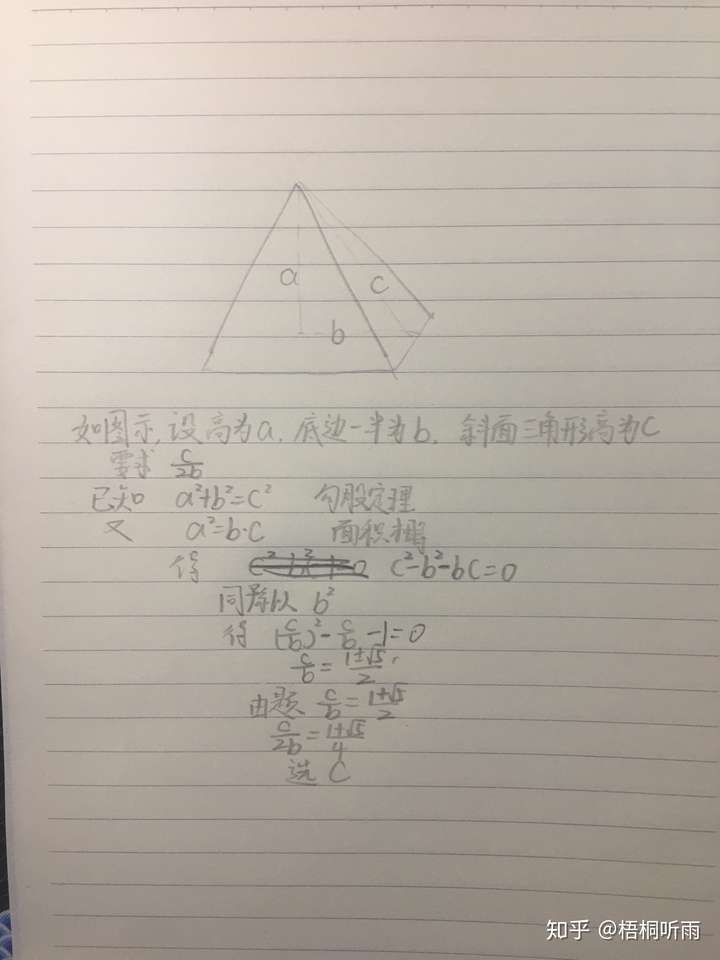 a
c
b
如图示,设高为a,底边一半为b,斜面三角形高为C
要求 c/2b
已知 a²+b²=c² 勾股定理
又 a²=b·c 面积相等
得 c²-b²-bc=0
同除以 b²
得 (c/b)²-c/b-1=0
c/b=(1±√5)/2
由题 c/b=(1+√5)/2
c/2b=(1+√5)/4
选 C
知乎 @梧桐听雨